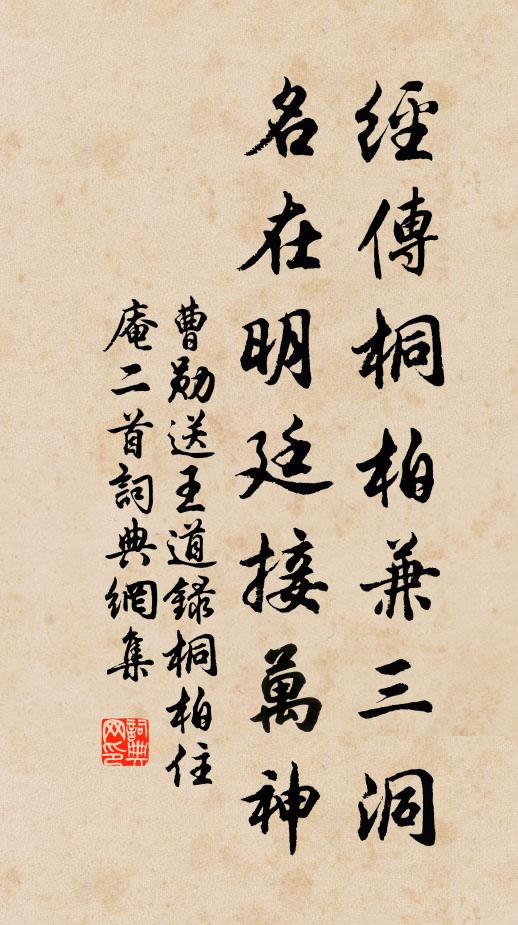 經傳桐柏兼三洞
名在明廷接萬神
曹勛送王道錄桐柏住
庵二首詞典網集
詞典
网印